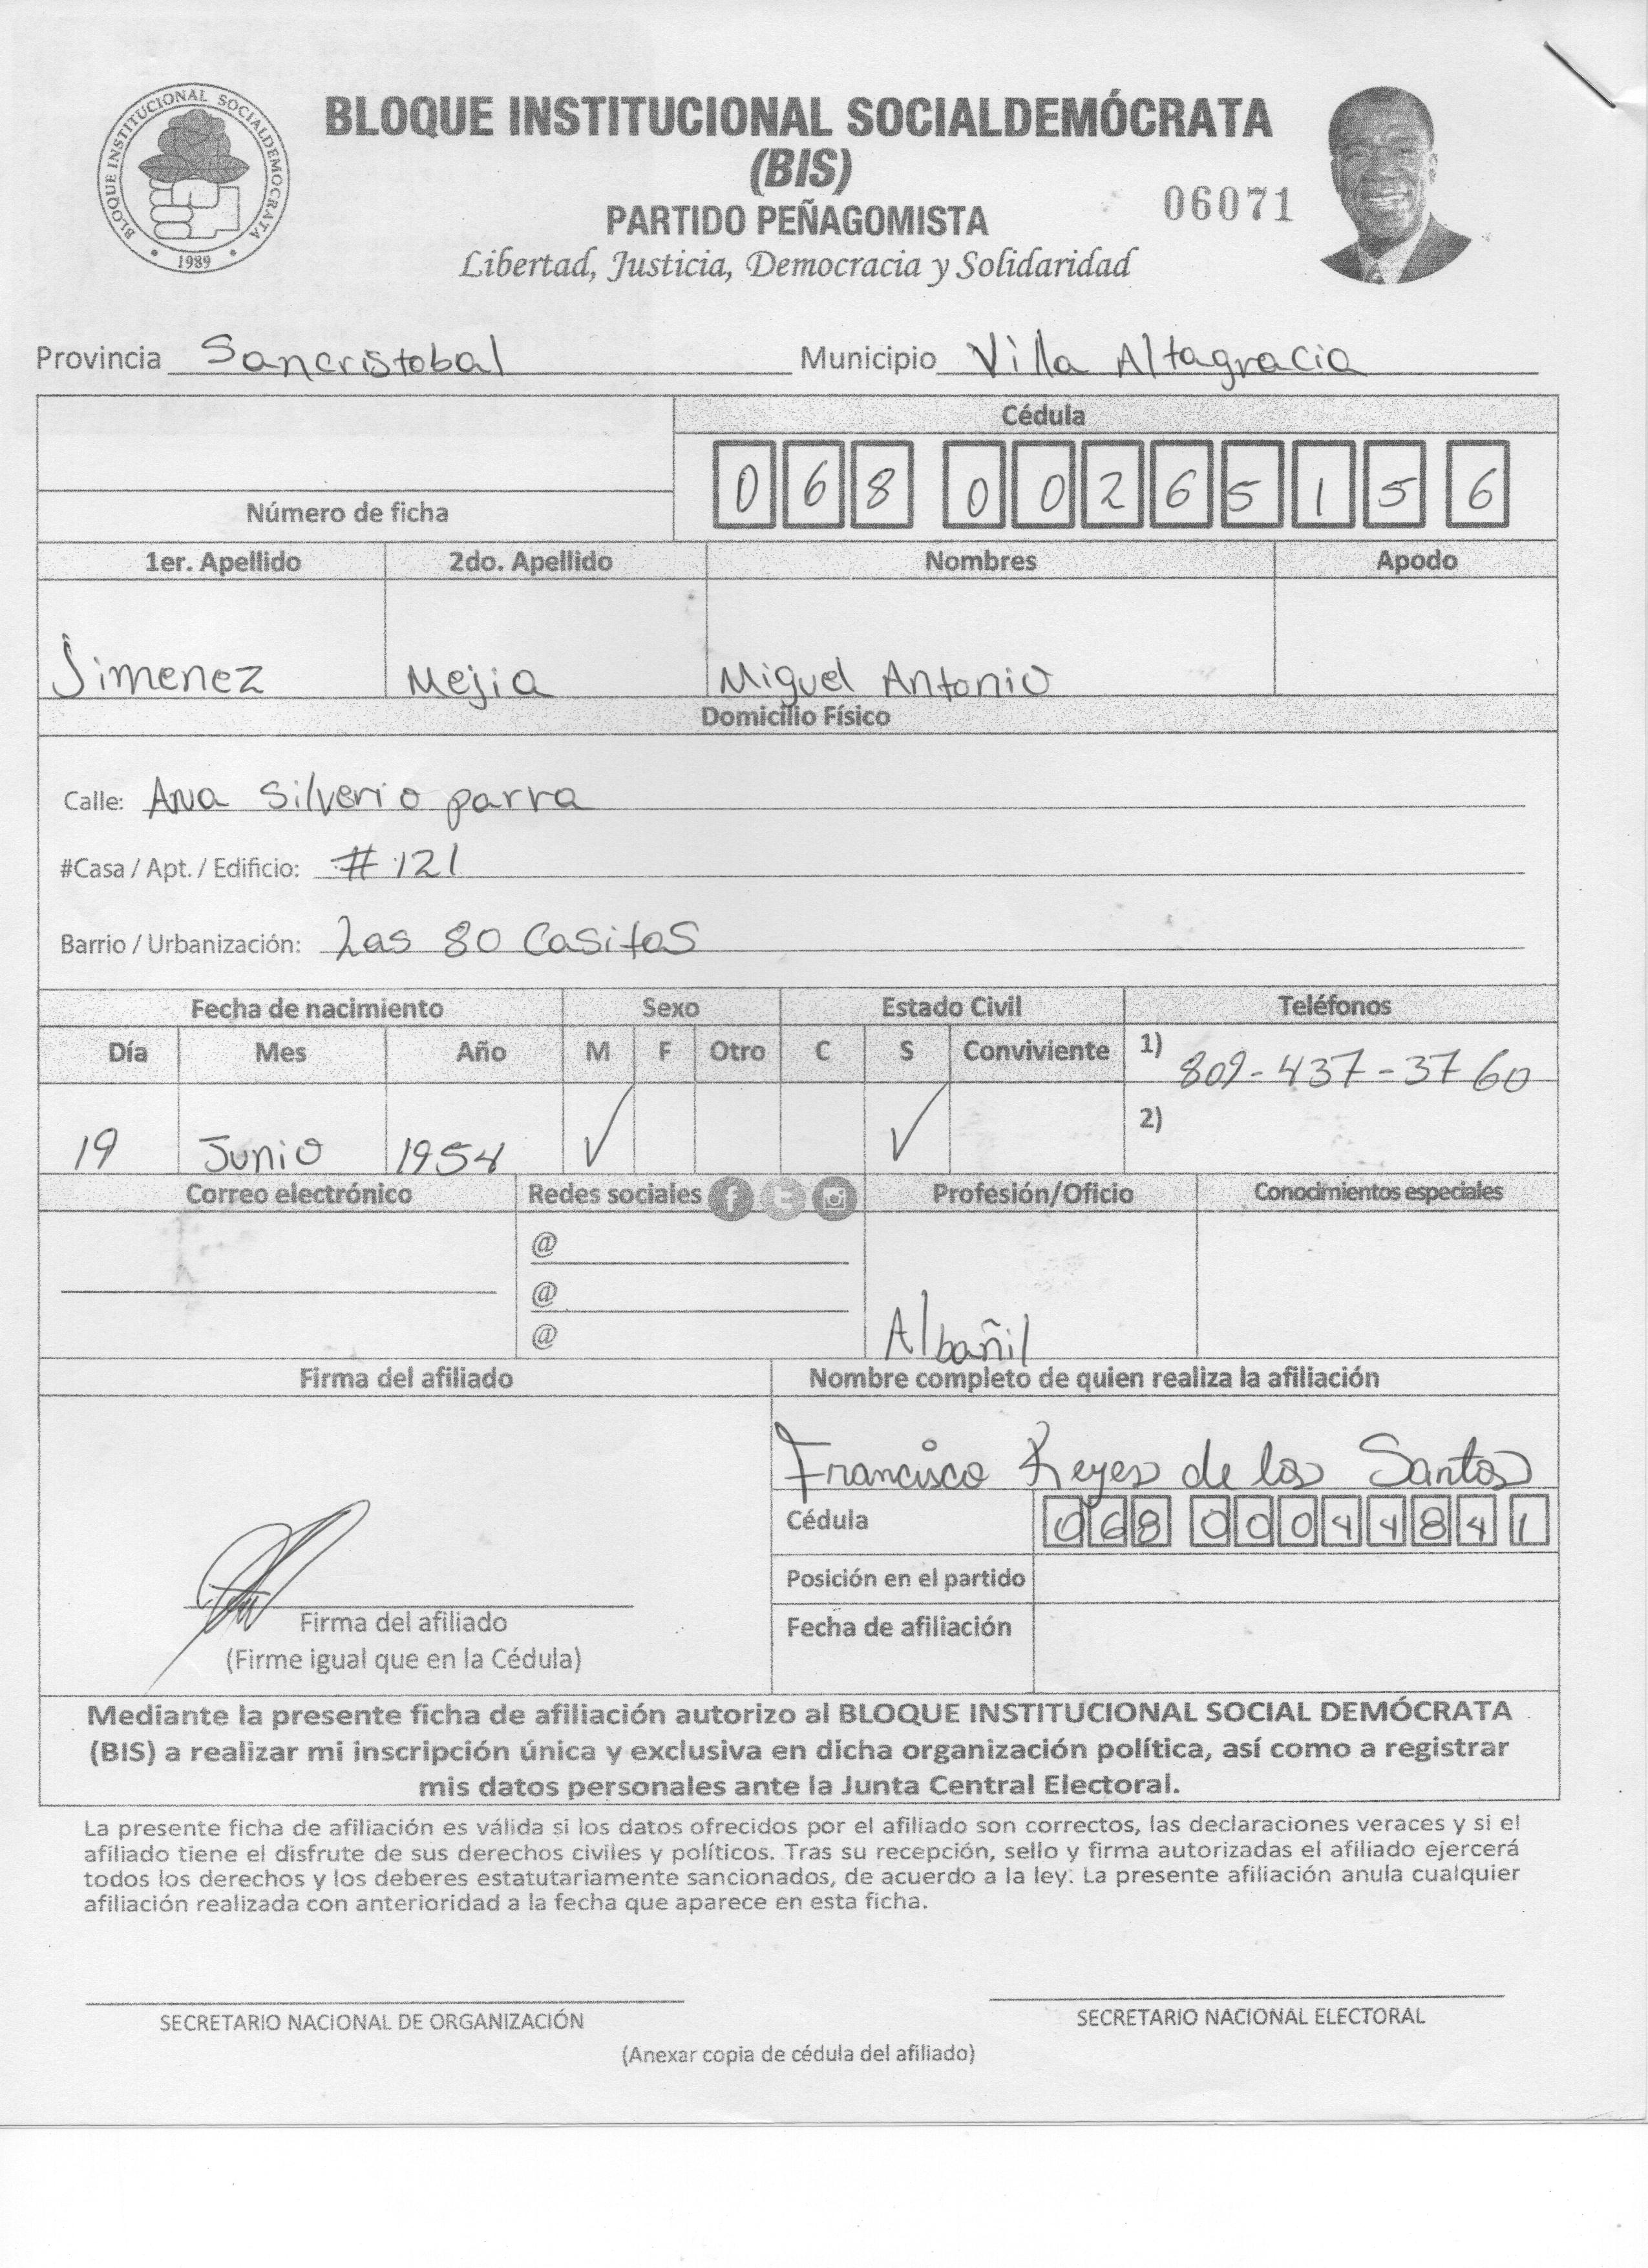 BLOQUE INSTITUCIONAL SOCIALDEMOCRATA
1989
BLOQUE INSTITUCIONAL SOCIALDEMÓCRATA
(BIS)
PARTIDO PEÑAGOMISTA
06071
Libertad, Justicia, Democracia y Solidaridad
Provincia Sancristobal Municipio Villa Altagracia
Cédula
068 0026515 6
Número de ficha
1er. Apellido 2do. Apellido Nombres Apodo
Jimenez Mejia Miguel Antonio
Domicilio Físico
Calle: Ana Silverio parra
#Casa / Apt. / Edificio: # 121
Barrio / Urbanización: Las 80 Casitas
Fecha de nacimiento Sexo Estado Civil Teléfonos
Día Mes Año M F Otro C S Conviviente 1) 809-437-3760
19 Junio 1954 ✓ ✓ 2)
Correo electrónico Redes sociales Profesión/Oficio Conocimientos especiales
@
@
@
Albañil
Firma del afiliado Nombre completo de quien realiza la afiliación
Francisco Reyes de los Santos
Cédula 068 0004484 1
Posición en el partido
Firma del afiliado
Fecha de afiliación
(Firme igual que en la Cédula)
Mediante la presente ficha de afiliación autorizo al BLOQUE INSTITUCIONAL SOCIAL DEMÓCRATA
(BIS) a realizar mi inscripción única y exclusiva en dicha organización política, así como a registrar
mis datos personales ante la Junta Central Electoral.
La presente ficha de afiliación es válida si los datos ofrecidos por el afiliado son correctos, las declaraciones veraces y si el
afiliado tiene el disfrute de sus derechos civiles y políticos. Tras su recepción, sello y firma autorizadas el afiliado ejercerá
todos los derechos y los deberes estatutariamente sancionados, de acuerdo a la ley. La presente afiliación anula cualquier
afiliación realizada con anterioridad a la fecha que aparece en esta ficha.
SECRETARIO NACIONAL DE ORGANIZACIÓN SECRETARIO NACIONAL ELECTORAL
(Anexar copia de cédula del afiliado)